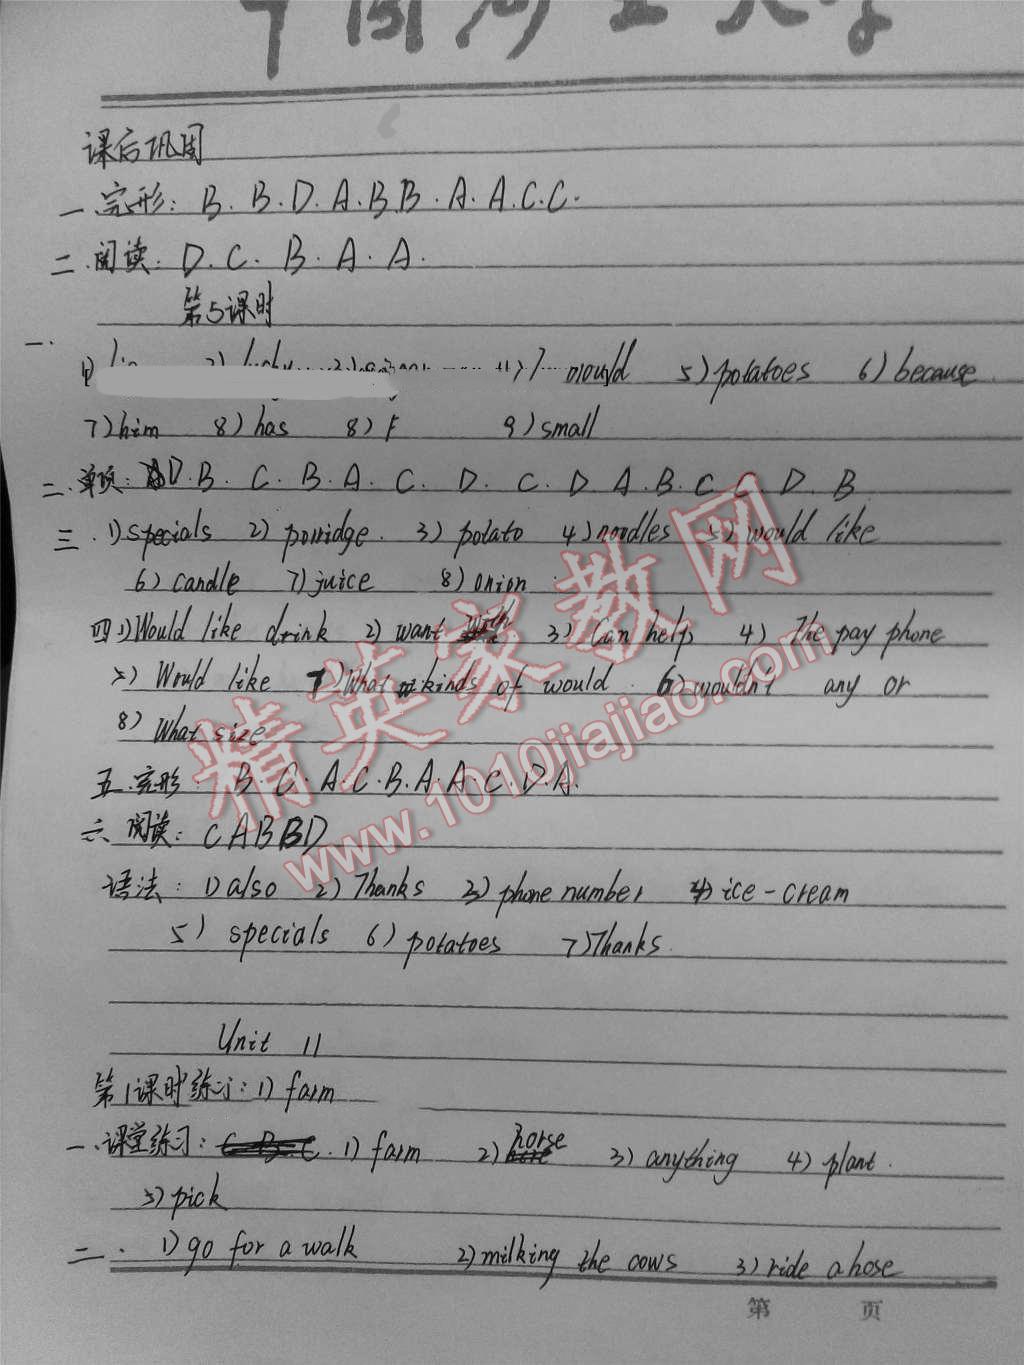 中国矿业大学
课后巩固
一.完形: B. B. D. A. B B. A. A. C. C.
二.阅读: D. C. B. A. A.
第5课时
一.
5) potatoes 6) because
7) him 8) has 8) F 9) small
二.单项: D. B. C. B. A. C. D. C. D A. B. C C D. B
三. 1) specials 2) porridge. 3) potato 4) noodles 5) would like
6) candle 7) juice 8) onion
四 1) Would like drink 2) want 3) Can help 4) The pay phone
5) Would like 7) What kinds of would 6) wouldn't any or
8) What size
五.完形: B. C. A. C. B. A. A. C. D. A.
六 阅读: C A B B D
语法: 1) also 2) Thanks 3) phone number 4) ice-cream
5) specials 6) potatoes 7) Thanks.
Unit 11
第1课时练习: 1) farm
一.课堂练习: 1) farm 2) horse 3) anything 4) plant.
5) pick
二. 1) go for a walk 2) milking the cows 3) ride a hose
第 页
精英家教网
www.1010jiajiao.com